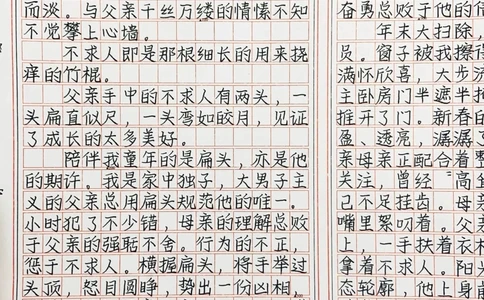 而淡。与父亲千丝万缕的情愫不知
不觉攀上心墙。
不求人即是那根细长的用来挠
痒的竹棍。
父亲手中的不求人有两头，一
头扁直似尺，一头弯如皎月，见证
了成长的太多美好。
陪伴我童年的是扁头，亦是他
的期许。我是家中独子，大男子主
义的父亲总用扁头规范他的唯一。
小时犯了不少错，母亲的理解总败
于父亲的强耻不舍。行为的不正，
惩于不求人。横握扁头，将手举过
头顶，怒目圆睁，势出一份凶相，
奋勇总败于他的
年末大扫除，
员。窗子被我擦得
满怀欣喜，大步
主卧房门半遮半
推开了门。新春的
盈、透亮，潺潺了
亲母亲正配合着
关注，曾经
己不足挂齿。母亲
嘴里絮叨着。父
上，一手扶着衣
拿着不求人。阳
态轮廓，他上身前